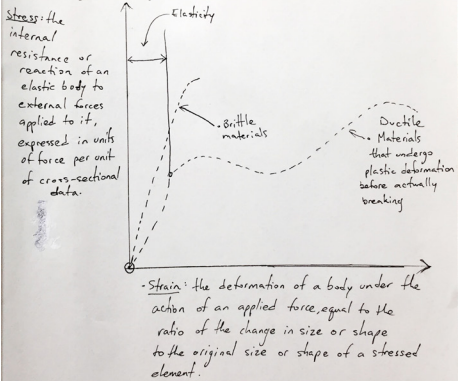 Stress: the
internal
resistance or
reaction of an
elastic body to
external forces
applied to it,
expressed in units
of force per unit
of cross-sectional
data.
Elasticity
• Brittle
materials
Ductile
• Materials
that undergo
plastic deformation
before actually
breaking
• Strain: the deformation of a body under the
action of an applied force, equal to the
ratio of the change in size or shape
to the original size or shape of a stressed
element.